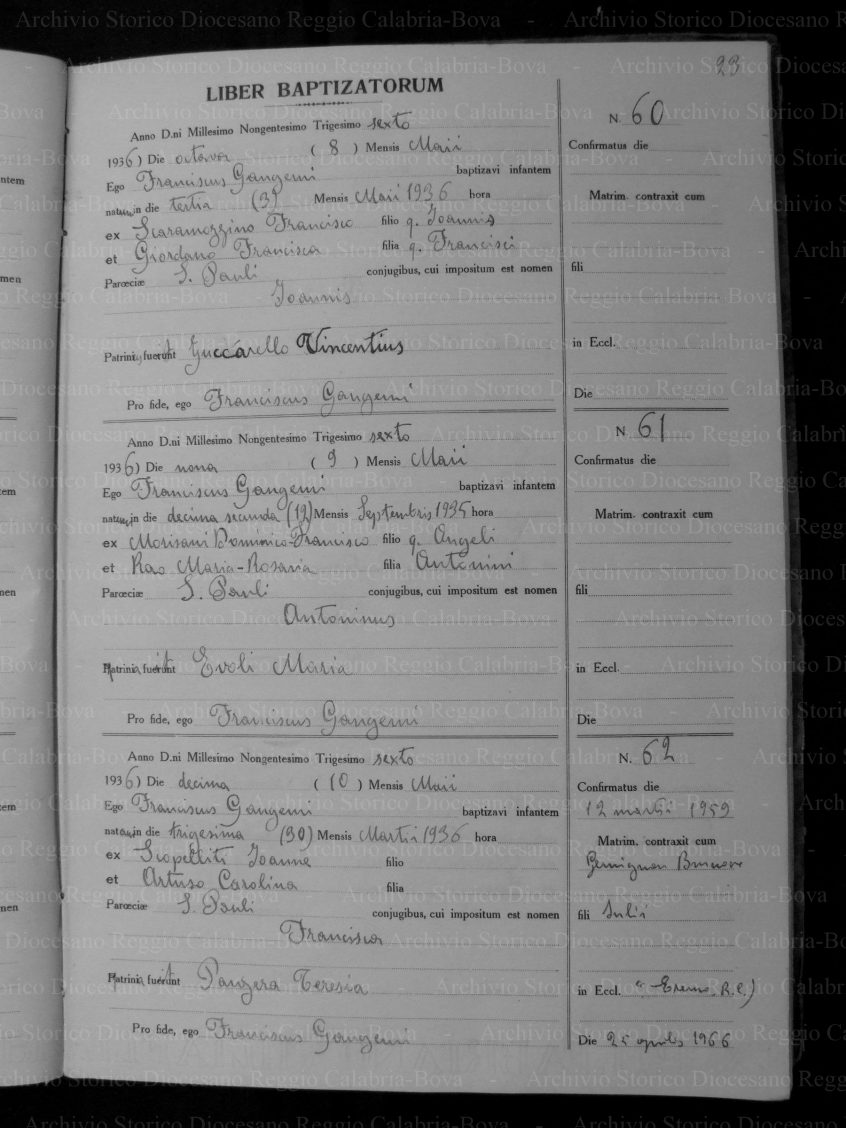 23
LIBER BAPTIZATORUM
Anno D.ni Millesimo Nongentesimo Trigesimo sexto
1936) Die octava ( 8 ) Mensis Maii
Ego Franciscus Gangemi baptizavi infantem
natum in die tertia (3) Mensis Maii 1936 hora
ex Scaramozzino Francisco filio q. Joannis
et Giordano Francisca filia q. Francisci
Parœciæ S. Pauli conjugibus, cui impositum est nomen
Joannis
Patrini fuerunt Zuccarello Vincentius
Pro fide, ego Franciscus Gangemi
N. 60
Confirmatus die
Matrim. contraxit cum
fili
in Eccl.
Die
Anno D.ni Millesimo Nongentesimo Trigesimo sexto
1936) Die nona ( 9 ) Mensis Maii
Ego Franciscus Gangemi baptizavi infantem
natum in die decima secunda (12) Mensis Septembris 1935 hora
ex Morisani Dominico-Francisco filio q. Angeli
et Rao Maria-Rosaria filia Antonini
Parœciæ S. Pauli conjugibus, cui impositum est nomen
Antoninus
Matrina fuit Evoli Maria
Pro fide, ego Franciscus Gangemi
N. 61
Confirmatus die
Matrim. contraxit cum
fili
in Eccl.
Die
Anno D.ni Millesimo Nongentesimo Trigesimo sexto
1936) Die decima ( 10 ) Mensis Maii
Ego Franciscus Gangemi baptizavi infantem
natam in die trigesima (30) Mensis Martii 1936 hora
ex Scopelliti Joanne filio
et Artuso Carolina filia
Parœciæ S. Pauli conjugibus, cui impositum est nomen
Francisca
Matrina fuit Panzera Teresia
Pro fide, ego Franciscus Gangemi
N. 62
Confirmatus die
12 martii 1959
Matrim. contraxit cum
fili Julii
in Eccl. "Eremo" R.C.)
Die 25 aprilis 1966
Archivio Storico Diocesano Reggio Calabria-Bova